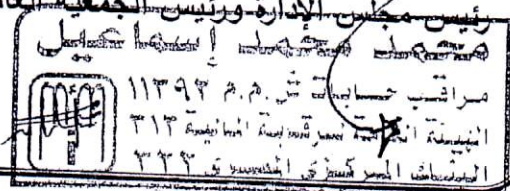 رئيس مجلس الإدارة ورئيس الجمعية العا
محمد محمد إسماعيل
مراقب حسابات س.م.م ١١٣٩٣
الهيئة العامة للرقابة المالية ٣١٢
البنك المركزي المصري ٣٣٢